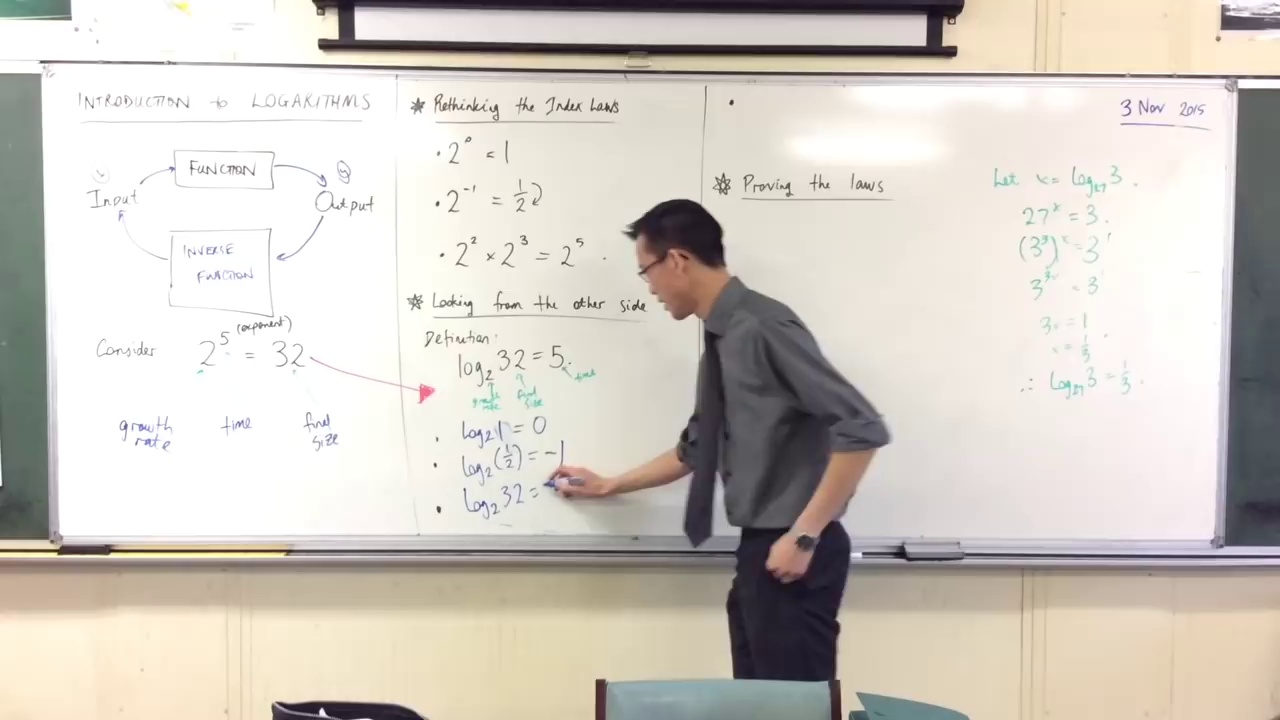 INTRODUCTION to LOGARITHMS
FUNCTION
Input
Output
INVERSE
FUNCTION
(exponent)
Consider 2⁵ = 32
growth rate
time
final size
Rethinking the Index Laws
• 2⁰ = 1
• 2⁻¹ = 1/2
• 2² × 2³ = 2⁵
Looking from the other side
Definition:
log₂ 32 = 5
growth rate
final size
time
• log₂ 1 = 0
• log₂ (1/2) = -1
• log₂ 32 =
Proving the laws
3 Nov 2015
Let x = log₂₇ 3.
27ˣ = 3.
(3³)ˣ = 3¹
3³ˣ = 3
3x = 1
x = 1/3
∴ log₂₇ 3 = 1/3.